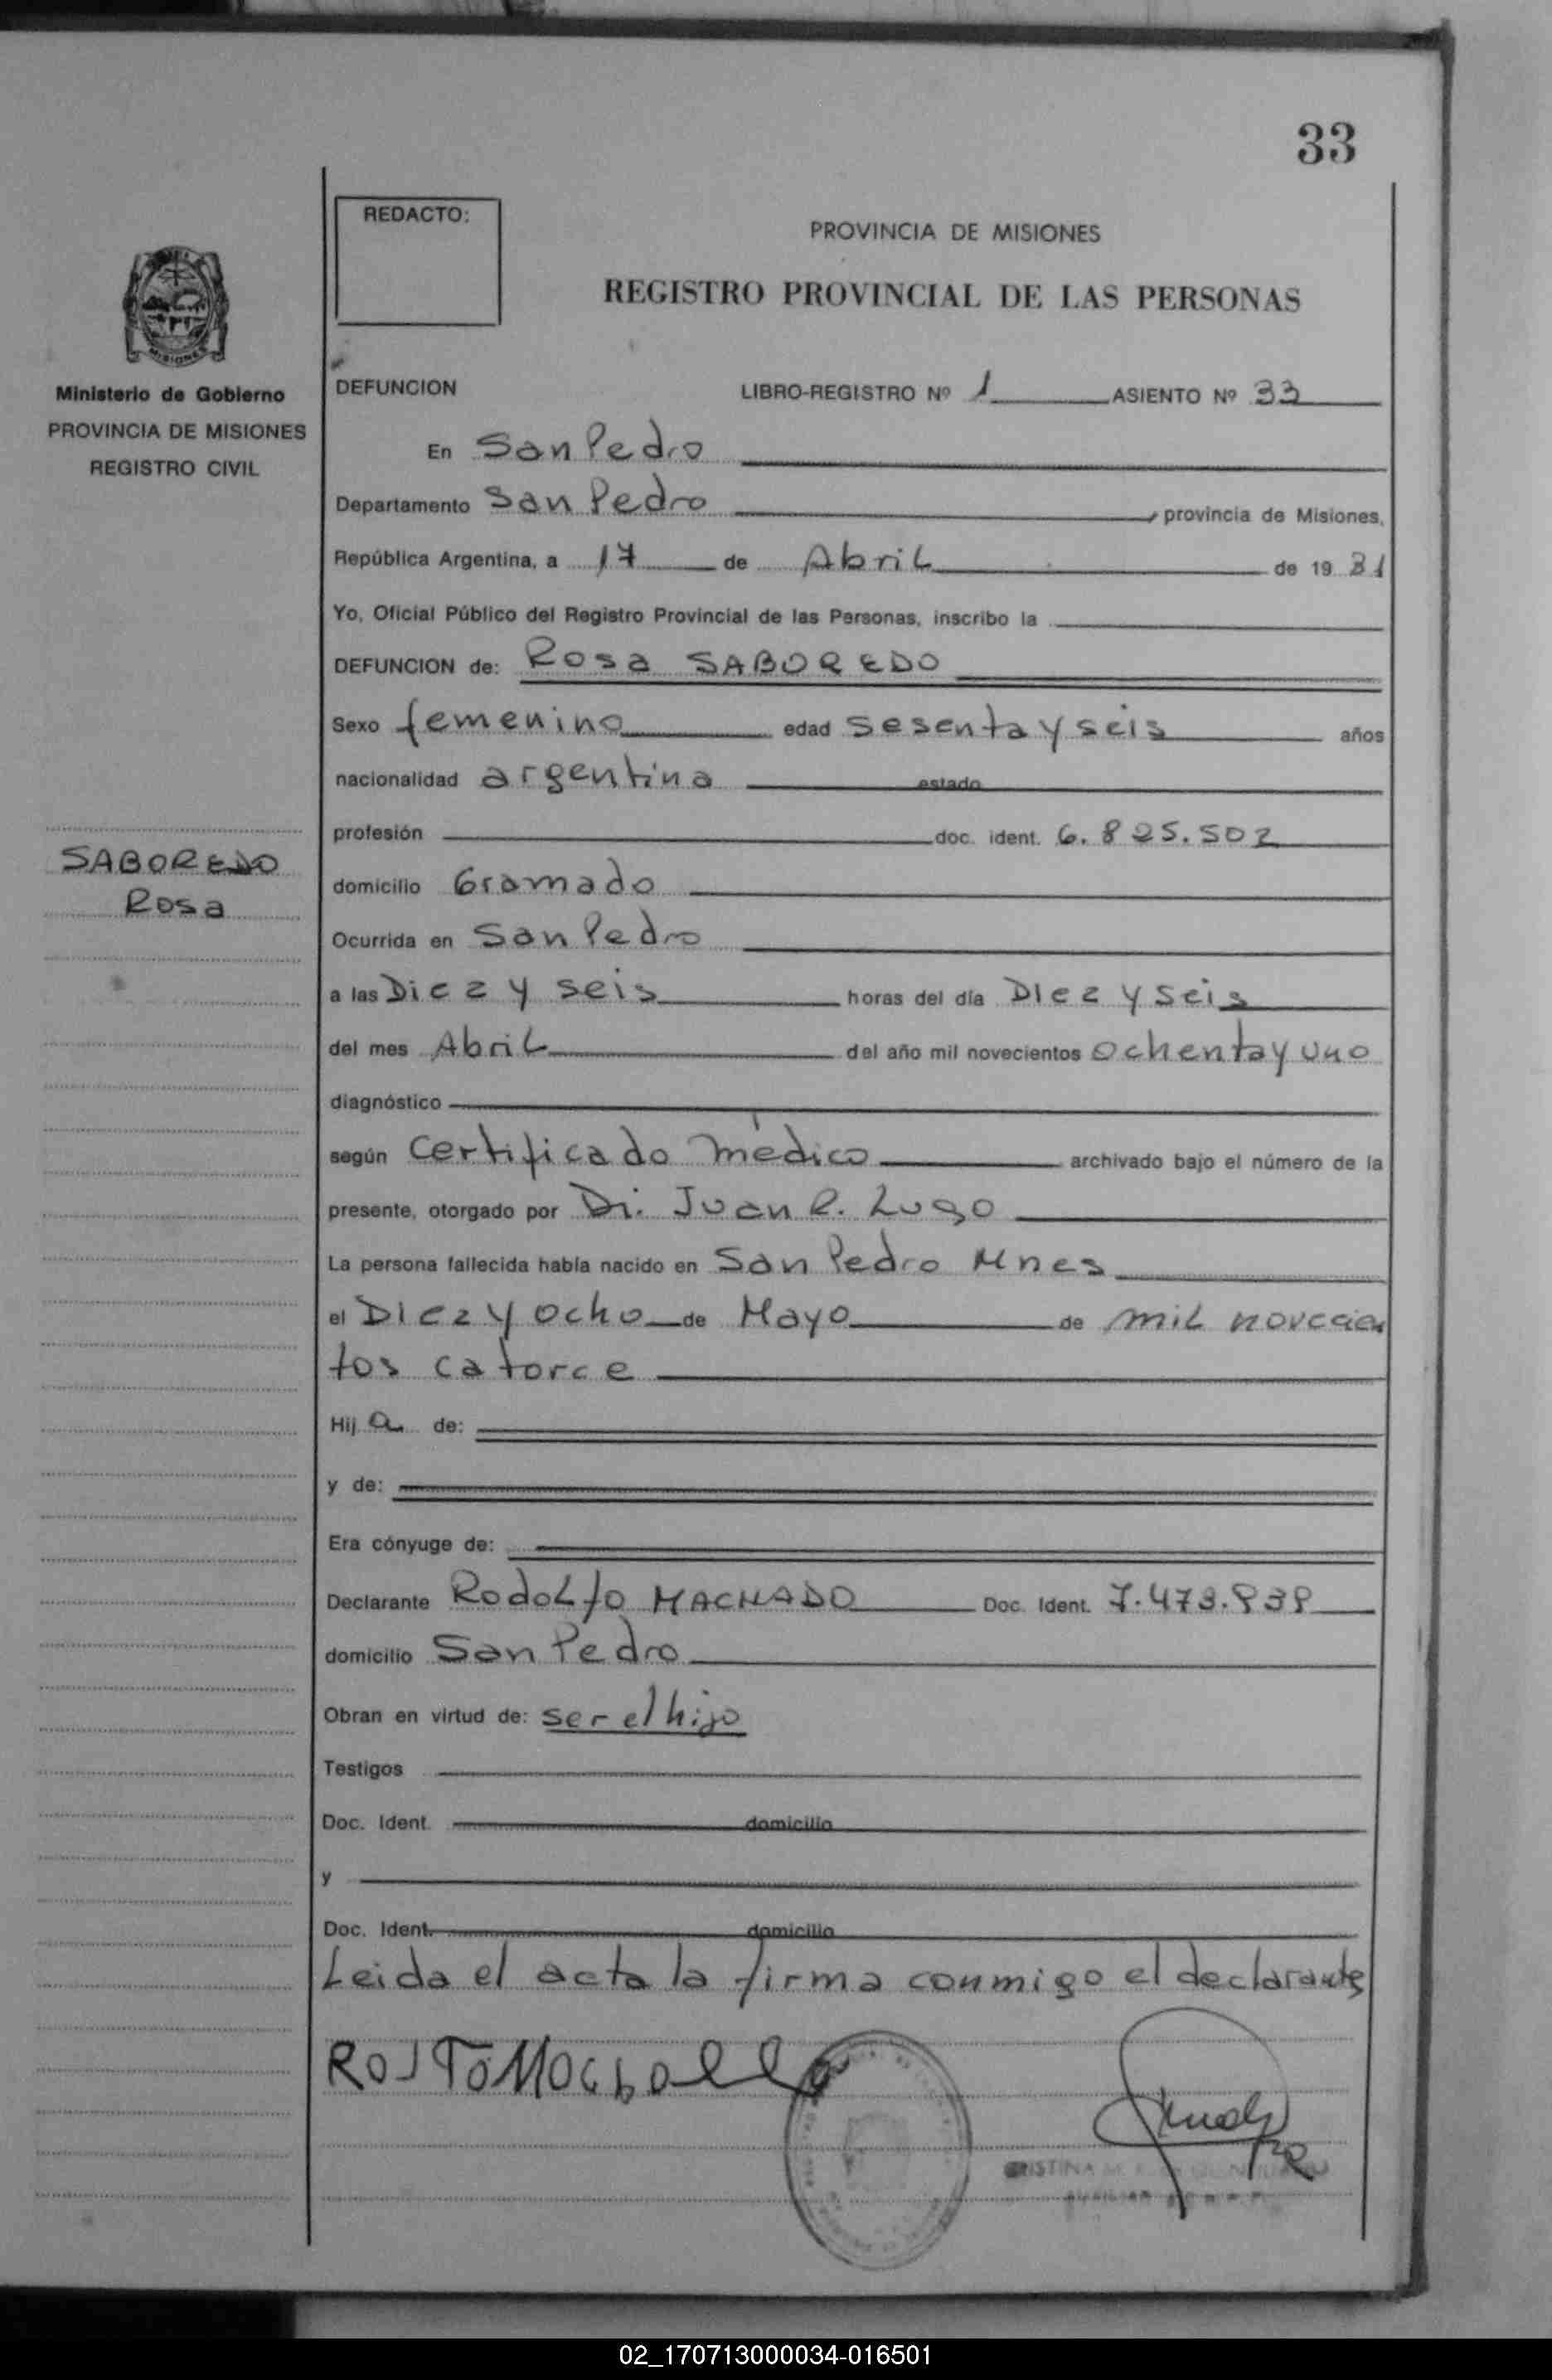 33
REDACTO:
PROVINCIA DE MISIONES
REGISTRO PROVINCIAL DE LAS PERSONAS
MISIONES
Ministerio de Gobierno
PROVINCIA DE MISIONES
REGISTRO CIVIL
SABOREDO
Rosa
DEFUNCION LIBRO-REGISTRO Nº 1 ASIENTO Nº 33
En San Pedro
Departamento San Pedro , provincia de Misiones,
República Argentina, a 17 de Abril de 19 81
Yo, Oficial Público del Registro Provincial de las Personas, inscribo la
DEFUNCION de: Rosa SABOREDO
Sexo femenino edad sesenta y seis años
nacionalidad argentina estado
profesión doc. ident. 6.825.502
domicilio Gramado
Ocurrida en San Pedro
a las Diez y seis horas del día Diez y seis
del mes Abril del año mil novecientos ochenta y uno
diagnóstico
según certificado médico archivado bajo el número de la
presente, otorgado por Dr. Juan R. Lugo
La persona fallecida había nacido en San Pedro Mnes
el Diez y ocho de Mayo de mil novecien
tos catorce
Hij a de:
y de:
Era cónyuge de:
Declarante Rodolfo MACHADO Doc. Ident. 7.473.939
domicilio San Pedro
Obran en virtud de: ser el hijo
Testigos
Doc. Ident. domicilio
y
Doc. Ident. domicilio
Leida el acta la firma conmigo el declarante
02_170713000034-016501